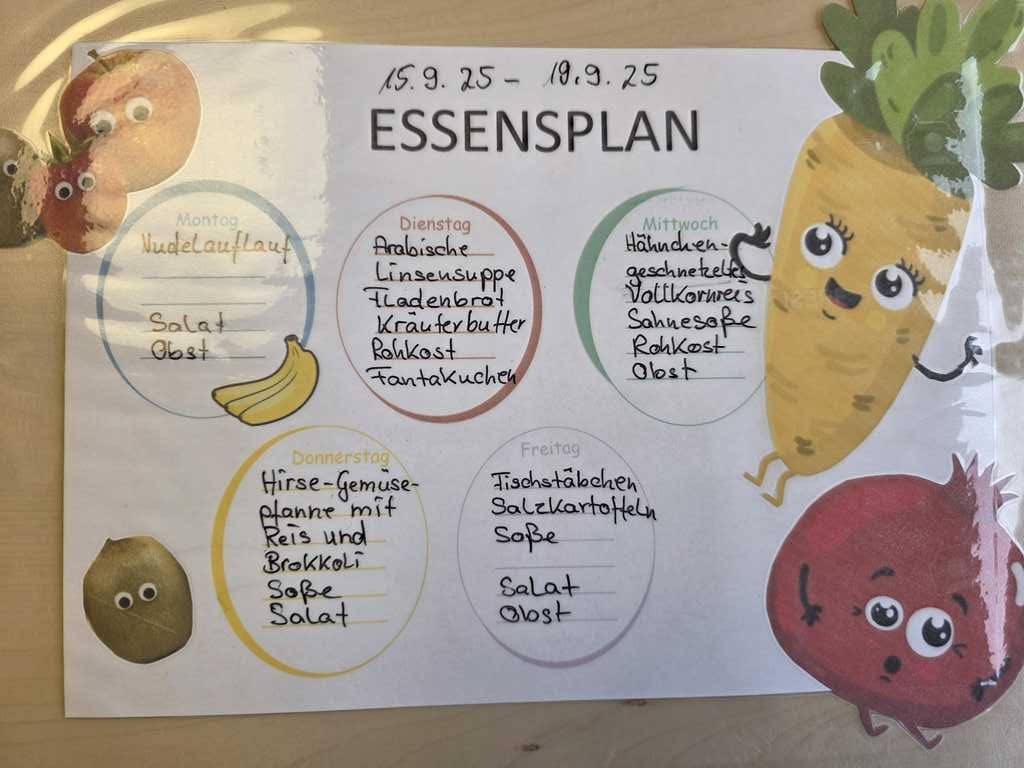 15.9.25 - 19.9.25
ESSENSPLAN
Montag
Nudelauflauf
Salat
Obst
Dienstag
Arabische
Linsensuppe
Fladenbrot
Kräuterbutter
Rohkost
Fantakuchen
Mittwoch
Hähnchen-
geschnetzeltes
Vollkornreis
Sahnesoße
Rohkost
Obst
Donnerstag
Hirse-Gemüse-
pfanne mit
Reis und
Brokkoli
Soße
Salat
Freitag
Fischstäbchen
Salzkartoffeln
Soße
Salat
Obst